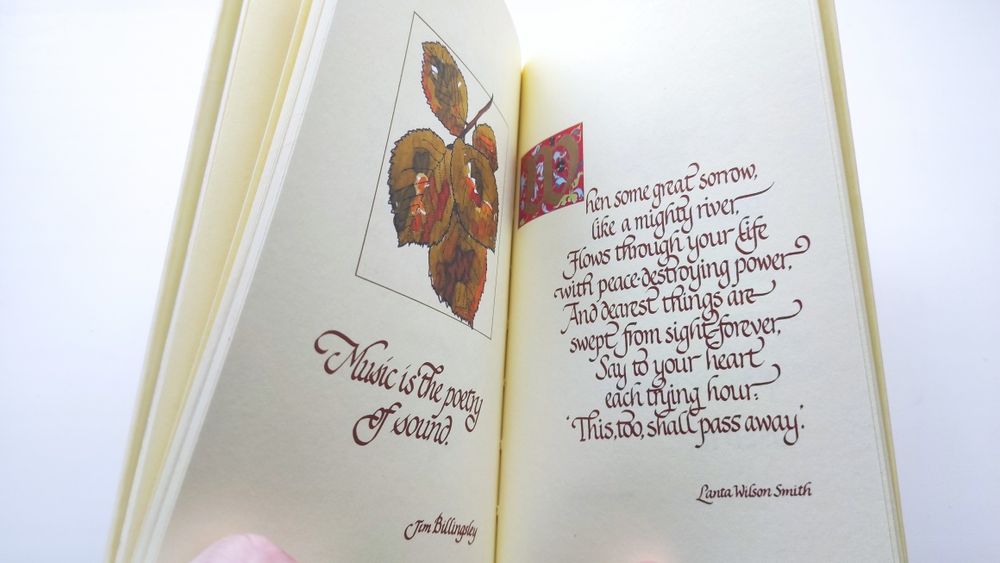 Music is the poetry
of sound.
Jim Billingsley
When some great sorrow,
like a mighty river,
Flows through your life
with peace-destroying power,
And dearest things are
swept from sight forever,
Say to your heart
each trying hour:
"This, too, shall pass away."
Lanta Wilson Smith